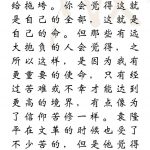 给拖垮。你会觉得这就
是自己的全部，这就
是自己的命。但那些有远
大抱负的人会觉得，之
所以这样，是因为我有
更重要的使命，只有经
过苦难或不幸才能达到
更高的境界，有点像为
了信仰苦修一样。袁隆
平在文革的时候也受了
很多罪，但是他觉得自